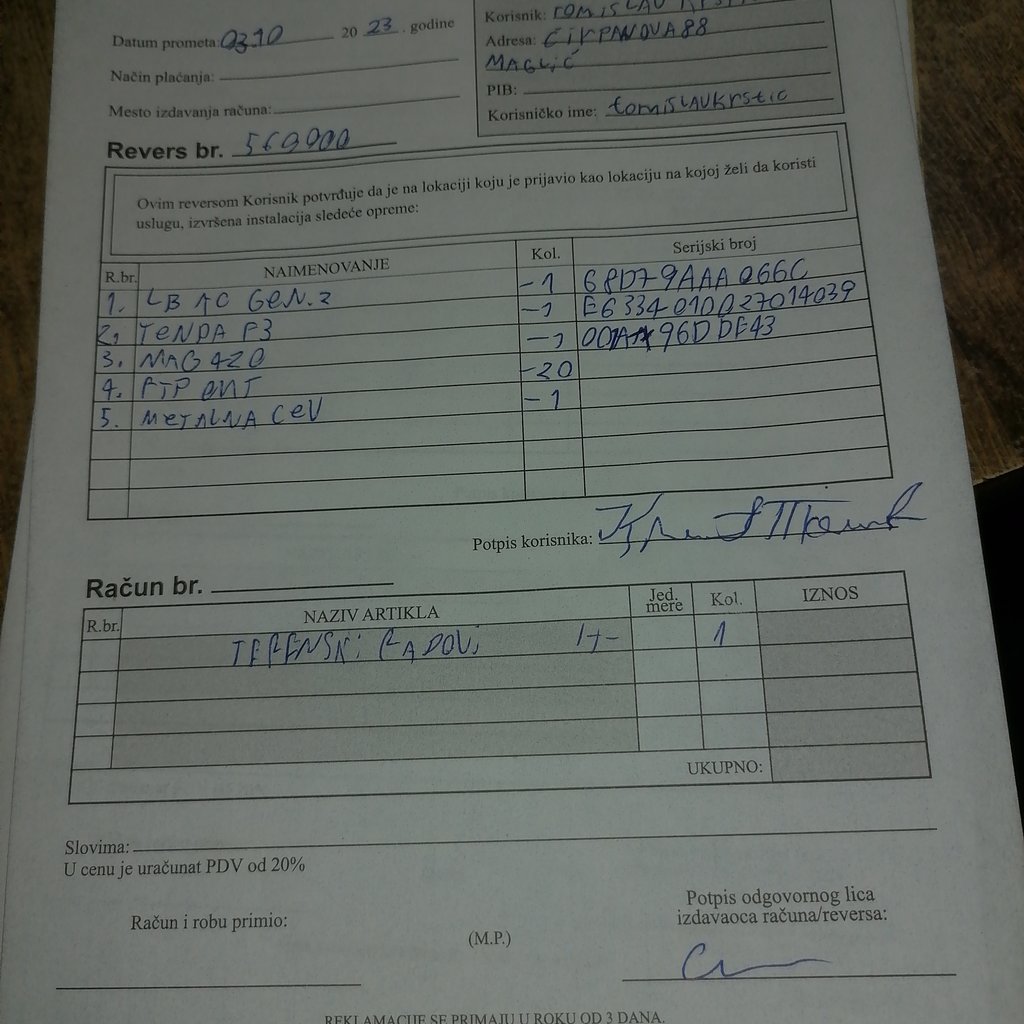 Datum prometa 0310 2023. godine
Način plaćanja:
Mesto izdavanja računa:
Korisnik: TOMISLAV
Adresa: ČIRPANOVA 88
MAGLIĆ
PIB:
Korisničko ime: tomislavkrstic
Revers br. 569900
Ovim reversom Korisnik potvrđuje da je na lokaciji koju je prijavio kao lokaciju na kojoj želi da koristi
uslugu, izvršena instalacija sledeće opreme:
R.br. NAIMENOVANJE Kol. Serijski broj
1. LB AC GEN.2 -1 68D79AAA066C
2. TENDA F3 -1 E6334010027014039
3. MAG 420 -1
4. FTP -20
5. METALNA CEV -1
Potpis korisnika:
Račun br.
R.br. NAZIV ARTIKLA Jed. mere Kol. IZNOS
TERENSKI RADOVI 1
UKUPNO:
Slovima:
U cenu je uračunat PDV od 20%
Račun i robu primio:
(M.P.)
Potpis odgovornog lica
izdavaoca računa/reversa:
REKLAMACIJE SE PRIMAJU U ROKU OD 3 DANA.